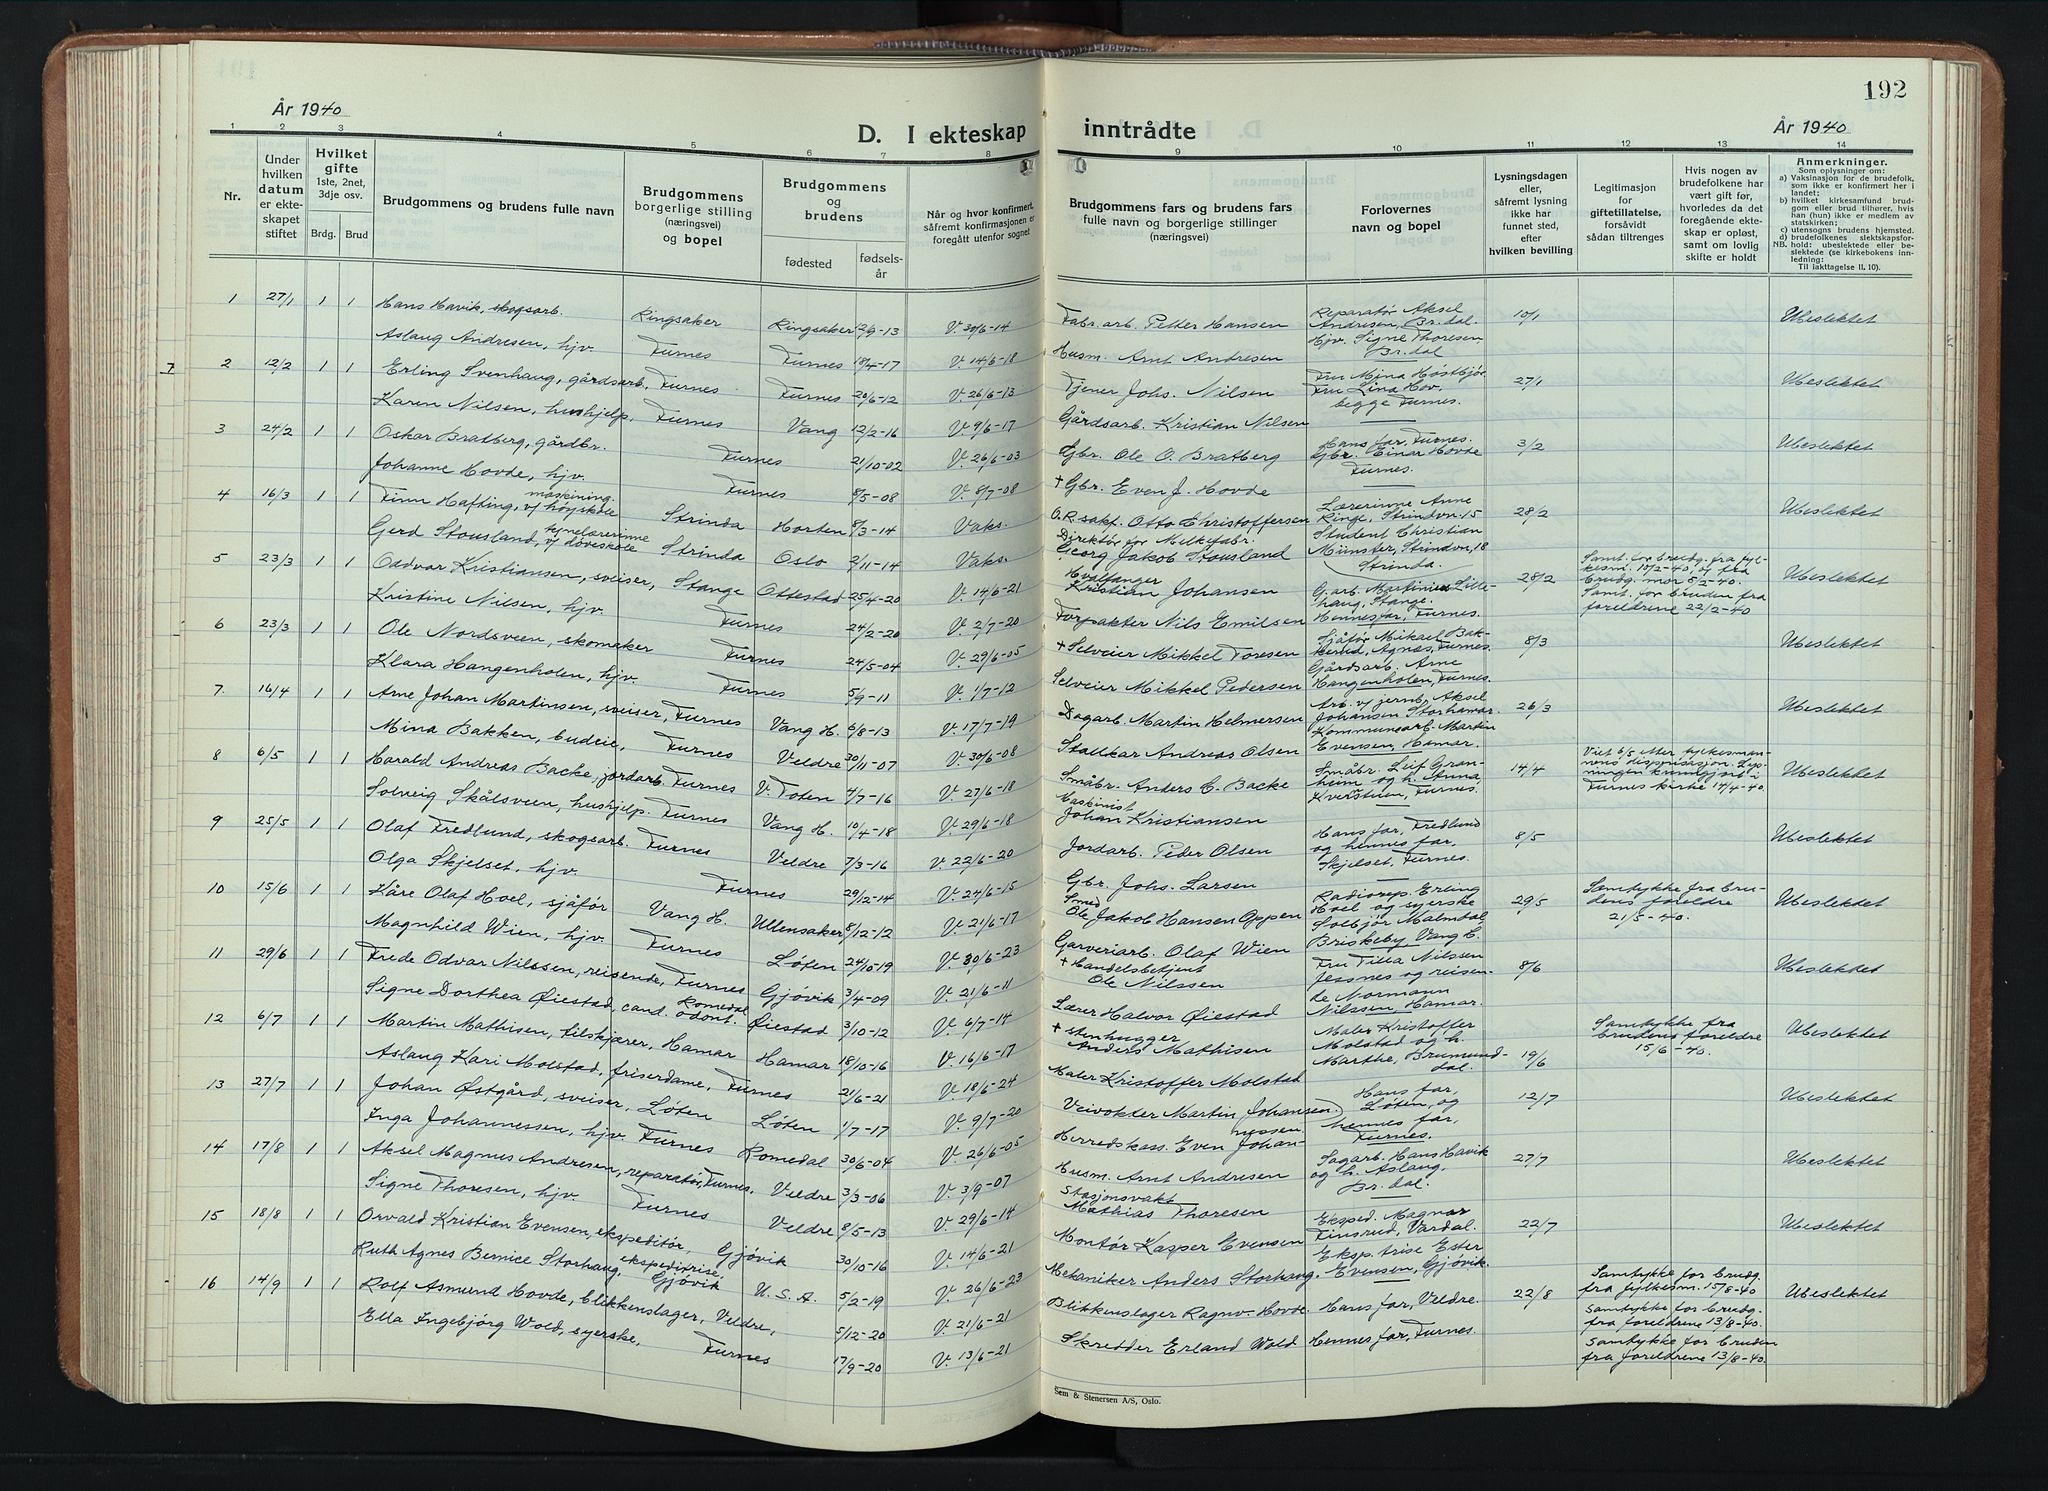 192
År 1940
År 1940
D. I ekteskap inntrådte
1 2 3 4 5 6 7 8 9 10 11 12 13 14
Nr.
Under hvilken datum er ekteskapet stiftet
Hvilket gifte 1ste, 2net, 3dje osv.
Brdg. Brud
Brudgommens og brudens fulle navn
Brudgommens borgerlige stilling (næringsvei) og bopel
Brudgommens og brudens
fødested
fødselsår
Når og hvor konfirmert, såfremt konfirmasjonen er foregått utenfor sognet
Brudgommens fars og brudens fars fulle navn og borgerlige stillinger (næringsvei)
Forlovernes navn og bopel
Lysningsdagen eller, såfremt lysning ikke har funnet sted, efter hvilken bevilling
Legitimasjon for giftetillatelse, forsåvidt sådan tiltrenges
Hvis nogen av brudefolkene har vært gift før, hvorledes da det foregående ekteskap er opløst, samt om lovlig skifte er holdt
Anmerkninger.
Som oplysninger om:
a) Vaksinasjon for de brudefolk, som ikke er konfirmert her i landet;
b) hvilket kirkesamfund brudgom eller brud tilhører, hvis han (hun) ikke er medlem av statskirken;
c) utensogns brudens hjemsted.
d) brudefolkenes slektskapsforhold: ubeslektede eller beslektede (se kirkebokens innledning:
NB.
Til iakttagelse II, 10).
1 27/1 1 1 Hans Havik, skogsarb. Ringsaker Ringsaker 12/9-13 V. 30/6-14 Fabr.arb. Petter Hansen Reparatør Aksel Andresen, Br.dal. 10/1 Ubeslektet
Aslaug Andresen, hjv. Furnes Furnes 18/4-17 V. 14/6-18 Husm. Arnt Andresen Hjv. Signe Thoresen Br.dal
2 12/2 1 1 Erling Svenhaug, gårdsarb. Furnes Furnes 20/6-12 V. 26/6-13 Tjener Johs. Nilsen Fru Mina Høstbjør. Fru Lina Hov. begge Furnes. 27/1 Ubeslektet
Karen Nilsen, hushjelp. Furnes Vang 12/2-16 V. 9/6-17 Gårdsarb. Kristian Nilsen
3 24/2 1 1 Oskar Bratberg, gårdbr. Furnes 21/10-02 V. 26/6-03 Gbr. Ole O. Bratberg Hans far, Furnes. Gbr. Einar Hovde Furnes. 3/2 Ubeslektet
Johanne Hovde, hjv. Furnes 8/5-08 V. 8/7-08 + Gbr. Even J. Hovde
4 16/3 1 1 Finn Hafting, maskining. v/ høyskole Strinda Horten 8/3-14 Vaks. O.R.sakf. Otto Christoffersen Lærerinne Anne Ringe, Strindvn. 15 28/2 Ubeslektet
Gerd Stousland, v/ døveskole Strinda Oslo 2/11-14 Vaks. Direktør for Melkefabr. Georg Jakob Stousland Student Christian Münster, Strindvn, 18 Strinda.
5 23/3 1 1 Oddvar Kristiansen, sveiser, Stange Ottestad 25/4-20 V. 14/6-21 Hvalfanger Kristian Johansen G.arb. Martinius Lillehaug, Stange. 28/2 Samt. for brudg. fra fylkesm. 10/2-40, og fra brudg. mor 8/2-40. Ubeslektet
Kristine Nilsen, hjv. Furnes 24/2-20 V. 2/7-20 Forpakter Nils Emilsen Hennes far, Furnes. Samt. for bruden fra foreldrene 22/2-40
6 23/3 1 1 Ole Nordsveen, skomaker Furnes 24/5-04 V. 29/6-05 + Selveier Mikkel Toresen Sjåfør Mikael Bakkerud, Agnæs, Furnes. 8/3 Ubeslektet
Klara Hangenholen, hjv. Furnes 5/9-11 V. 1/7-12 Selveier Mikkel Pedersen Gårdsarb. Arne Hangenholen, Furnes.
7. 16/4 1 1 Arne Johan Martinsen, sveiser, Furnes Vang H. 6/8-13 V. 17/7-19 Dagarb. Martin Helmersen Arb. v/ jernb. Aksel Johansen Storhamar. 26/3 Ubeslektet
Mina Bakken, budeie, Furnes Veldre 30/11-07 V. 30/6-08 Stallkar Andreas Olsen Kommunearb. Martin Evensen, Hamar.
8 6/5 1 1 Harald Andreas Backe, jordarb. Furnes V. Toten 4/7-16 V. 27/6-18 Småbr. Anders C. Backe Småbr. Leif Granheim og h. Anna, Kverstuen, Furnes. 14/4 Viet 6/5 etter fylkesmannens dispensasjon. Lysningen kunngjort i Furnes kirke 14/4-40. Ubeslektet
Solveig Skålsveen, hushjelp. Furnes Vang H. 10/4-18 V. 29/6-18 Maskinist Johan Kristiansen
9 25/5 1 1 Olaf Fredlund, skogsarb. Furnes Veldre 7/3-16 V. 22/6-20 Jordarb. Peder Olsen Hans far, Fredlund og hennes far, Skjelset, Furnes. 8/5 Ubeslektet
Olga Skjelset, hjv. Furnes 29/12-14 V. 24/6-15 Gbr. Johs. Larsen
10 15/6 1 1 Kåre Olaf Hoel, sjåfør Vang H. Ullensaker 8/12-12 V. 21/6-17 Smed Ole Jakob Hansen Oppen Radiorep. Erling Hoel og syerske Solbjør Malmdal, Briskeby, Vang H. 29/5 Samtykke fra brudens foreldre 21/5-40. Ubeslektet
Magnhild Wien, hjv. Furnes Løten 24/10-19 V. 30/6-23 Garveriarb. Olaf Wien
11 29/6 1 1 Frede Odvar Nilssen, reisende, Furnes Gjøvik 3/4-09 V. 21/6-11 + Handelsbetjent Ole Nilssen Fru Tilla Nilssen Jessnes og reisende Normann Nilssen, Hamar. 8/6 Ubeslektet
Signe Dorthea Øiestad, cand. odont. Romedal Øiestad 3/10-12 V. 6/7-14 Lærer Halvor Øiestad
12 6/7 1 1 Martin Mathisen, tilskjærer, Hamar Hamar 18/10-16 V. 16/6-17 + Stenhugger Anders Mathisen Maler Kristoffer Molstad og h. Marthe, Brumunddal. 19/6 Samtykke fra brudens foreldre 15/6-40. Ubeslektet
Aslaug Kari Molstad, friserdame, Furnes 21/6-21 V. 18/6-24 Maler Kristoffer Molstad
13 27/7 1 1 Johan Østgård, sveiser, Løten Løten 1/7-17 V. 9/7-20 Veivokter Martin Johansen Hans far, Løten, og hennes far, Furnes. 12/7 Ubeslektet
Inga Johannessen, hjv. Furnes Romedal 30/6-04 V. 26/6-05 Herredskass. Even Johannessen
14 17/8 1 1 Aksel Magnus Andresen, reparatør, Furnes, Veldre 3/3-06 V. 3/9-07 Husm. Arnt Andresen Sagarb. Hans Havik og h. Aslaug, Br.dal. 27/7 Ubeslektet
Signe Thoresen, hjv. Furnes Veldre 8/5-13 V. 29/6-14 Stasjonsvakt Mathias Thoresen
15 18/8 1 1 Orvald Kristian Evensen, ekspeditør, Gjøvik 30/10-16 V. 14/6-21 Montør Kasper Evensen Eksped. Magnar Finsrud, Vardal. 22/7 Ubeslektet
Ruth Agnes Bernice Storhaug, ekspeditrise, Gjøvik U.S.A. 5/2-19 V. 26/6-23 Mekaniker Anders Storhaug. Eksp.trise Ester Evensen, Gjøvik.
16 14/9 1 1 Rolf Asmund Hovde, blikkenslager, Veldre, 5/12-20 V. 21/6-21 Blikkenslager Ragnv. Hovde Hans far, Veldre. 22/8 Samtykke for brudg. fra fylkesm. 15/8-40 Samtykke for brudg. fra foreldrene 13/8-40. Ubeslektet
Ella Ingebjørg Wold, syerske, Furnes 17/9-20 V. 13/6-21 Skredder Erland Wold Hennes far, Furnes. Samtykke for bruden fra foreldrene 13/8-40.
Sem & Stenersen A/S, Oslo.